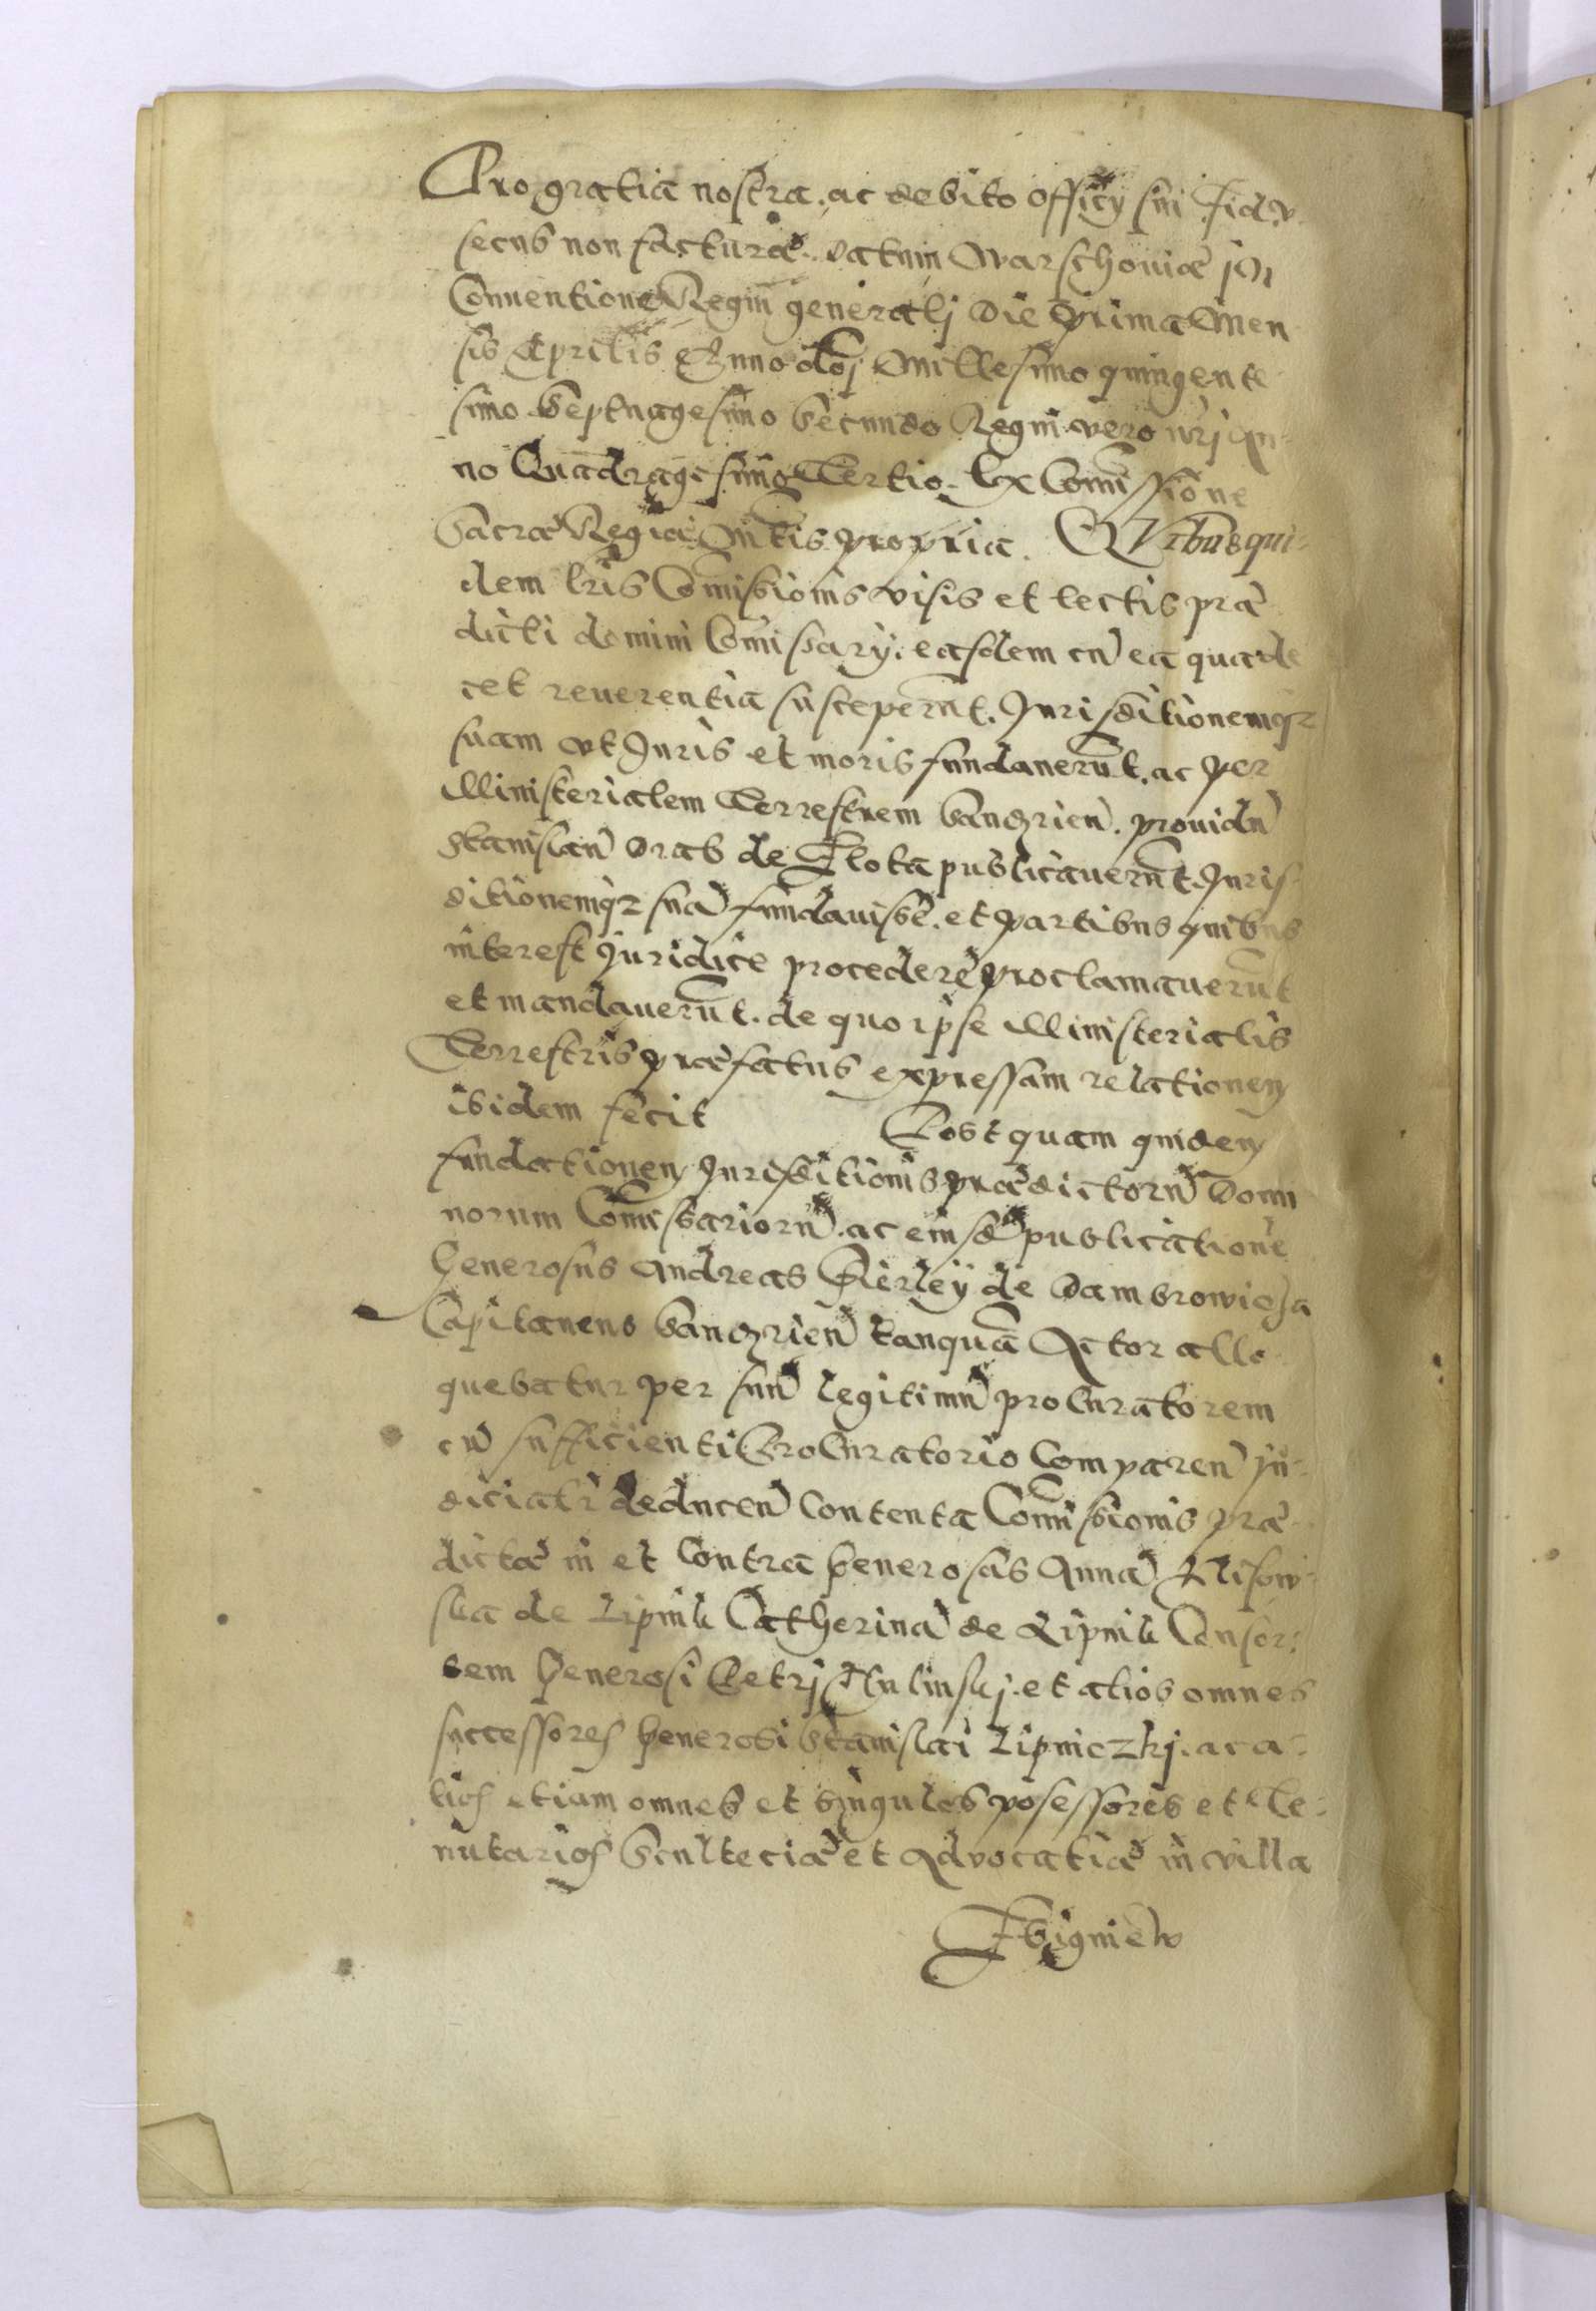 Pro gratia nostra. ac debito officÿ sui
secus non facturæ. datum Warschoviæ in
Conuentione Regni generalj Die Prima Men
sis Aprilis Anno dōj Millesimo quingente
simo Septuagesimo Secundo Regni vero nrj An-
no Quadragesimo Tertio. Ex Comissione
Sacræ Regiæ Mtis propria. QVibus qui-
dem lris Comissionis visis et lectis præ
dicti domini Comissarÿ. easdem cū ea qua de
cet reuerentia susceperūt. Jurisditionemqz
suam vt Juris et moris fundauerūt. ac per
Ministerialem Terrestrem Sanozien. prouidū
Stanislaū Drab de Zlota publicauerūt. Juris-
ditionemqz suā fundauisse. et partibus quibus
interest juridice procedere proclamauerūt
et mandauerūt. de quo ipse Ministerialis
Terrestris præfatus expressam relationem
ibidem fecit Post quam quidem
fundationem Jurisditionis prædictorū Domi
norum Comissariorū. ac eiusdē publicatione
Generosus Andreas Firleÿ de Dambrowicza
Capitaneus Sanozien tanquā Actor allo
quebatur per suū legitimū proCuratorem
cū sufficienti ProCuratorio Comparen ju-
dicialr deducen Contenta Comissionis præ-
dictæ in et Contra Generosas Annā
de Lipnik Catherinā de Lipnik Consor-
tem Generosi Petrj et alios omnes
successores Generosi Stanislai Lipniczkj. ac a-
lios etiam omnes et singulos possessores et Te-
nutarios Scultetiæ et Advocatiæ in villa
Zbigniew